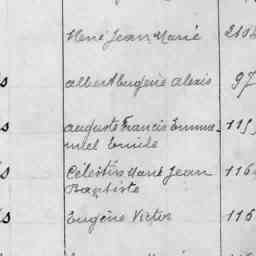 René Jean Marie 210
s albert Eugène alexis 97
s auguste Francis Emma-
nuel Emile 115
s Célestin Marie Jean 116
Baptiste
s Eugène Victor 116